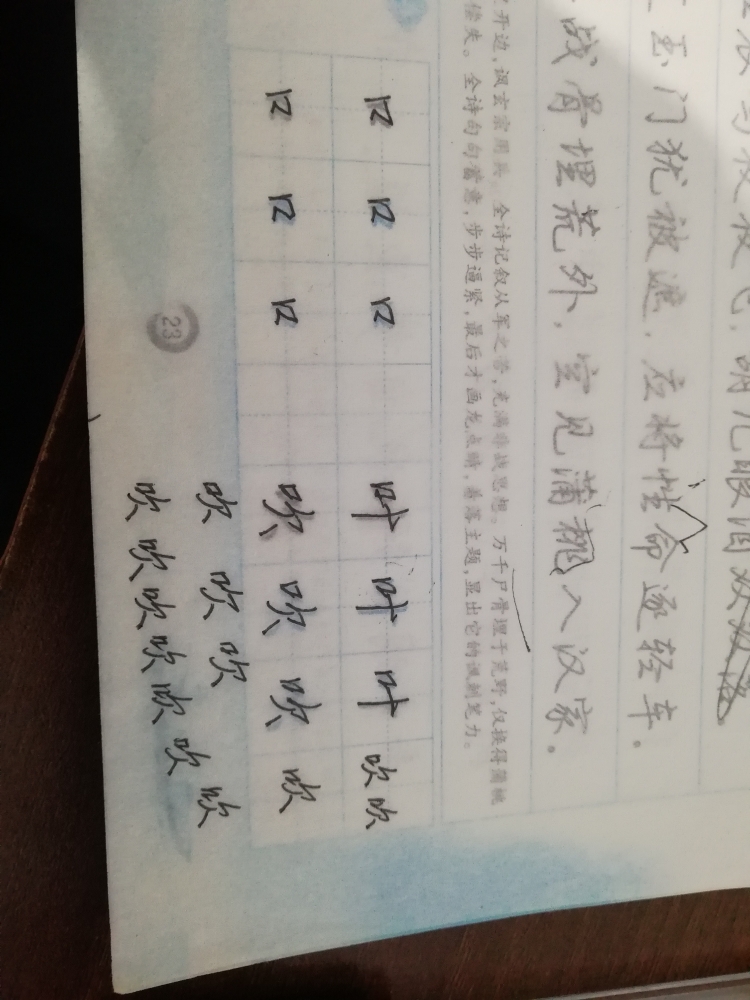 夜夜飞,胡儿眼泪双双落
玉门犹被遮,应将性命逐轻车。
战骨埋荒外,空见蒲桃入汉家。
开边,讽玄宗用兵。全诗记叙从军之苦,充满非战思想。万千尸骨埋于荒野,仅换得蒲桃
偿失。全诗句句蓄意,步步逼紧,最后才画龙点睛,着落主题,显出它的讽刺笔力。
口 口 口 叶 叶 叶 吹 吹
口 口 口 吹 吹 吹 吹
吹 吹 吹
23
吹 吹 吹 吹 吹 吹 吹